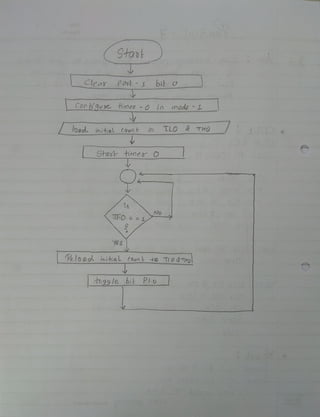 Start
Clear Port-1 bit 0
Configure timer-0 in mode-1
load initial count in TL0 & TH0
Start timer 0
Is
TF0 == 1
?
No
Yes
Reload initial count to TL0 & TH0
toggle bit P1.0